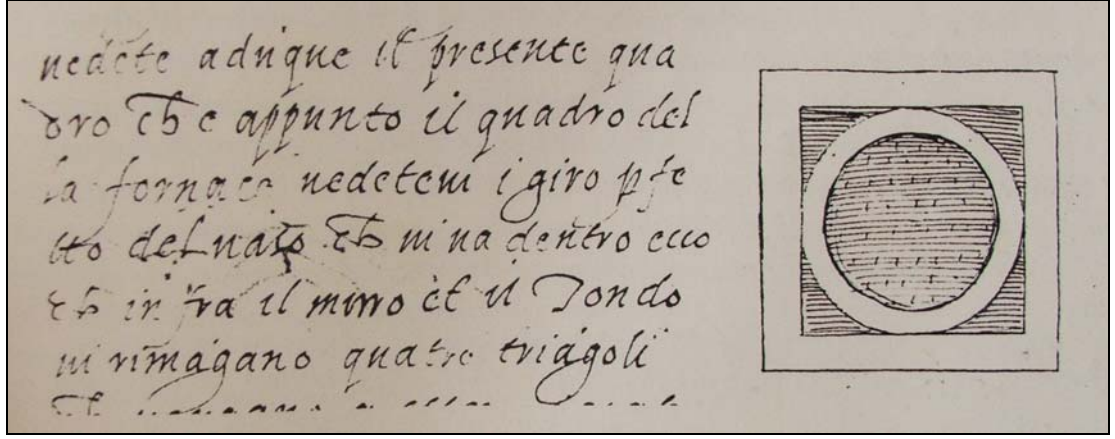 uedete adūque il presente qua
dro ch e appunto il quadro del
la fornace uedeteui ī giro pfe
tto del uaso ch ui ua dentro ecco
ch in fra il muro et il Tondo
ui rimāgano quatro triāgoli